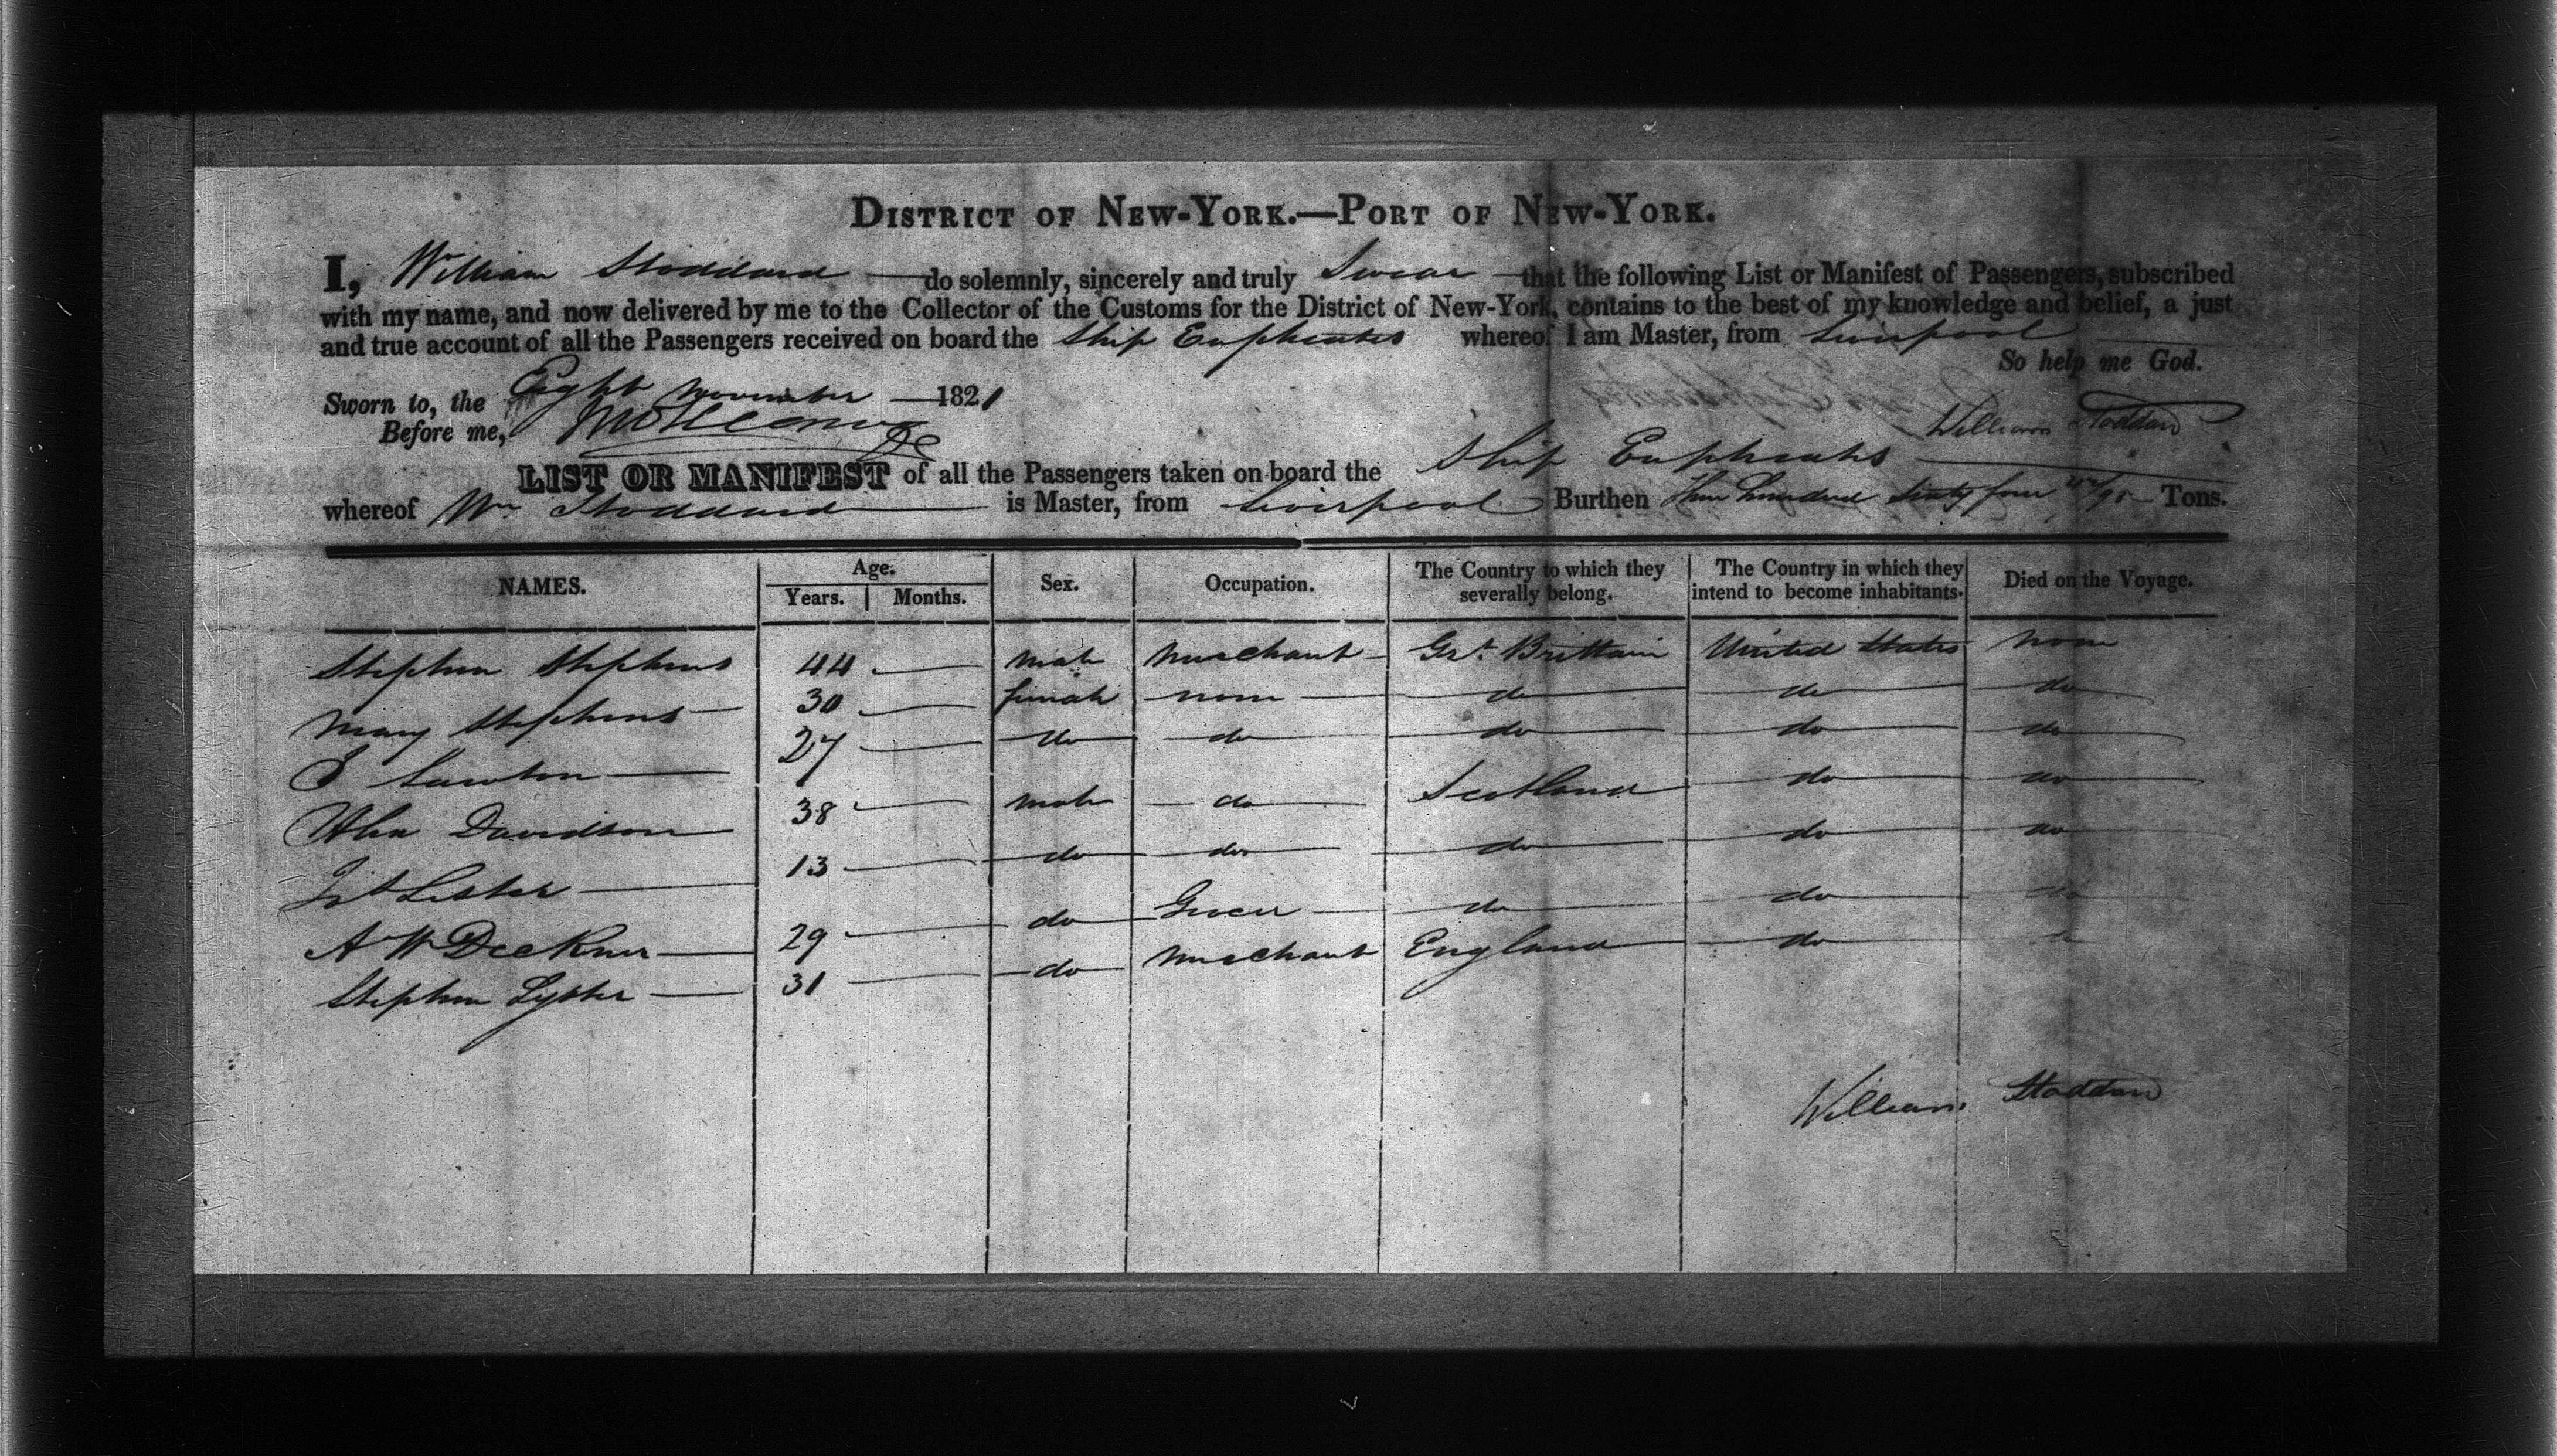 DISTRICT OF NEW-YORK.—PORT OF NEW-YORK.
I, William Stoddard do solemnly, sincerely and truly Swear that the following List or Manifest of Passengers, subscribed
with my name, and now delivered by me to the Collector of the Customs for the District of New-York, contains to the best of my knowledge and belief, a just
and true account of all the Passengers received on board the Ship Euphrates whereof I am Master, from Liverpool
So help me God.
Sworn to, the Eight November 1821
Before me,
William Stoddard
LIST OR MANIFEST of all the Passengers taken on board the Ship Euphrates
whereof Wm Stoddard is Master, from Liverpool Burthen Three hundred Sixty four /95 Tons.
NAMES. Age. Years. Months. Sex. Occupation. The Country to which they severally belong. The Country in which they intend to become inhabitants. Died on the Voyage.
Stephen Stephens 44 male merchant Grt. Brittain United States none
Mary Stephens 30 female none do do do
S Lawton 27 do do do do do
Davidson 38 male do Scotland do do
Lester 13 do do do do do
A W 29 do Grocer do do do
Stephen Lyster 31 do merchant England do
William Stoddard